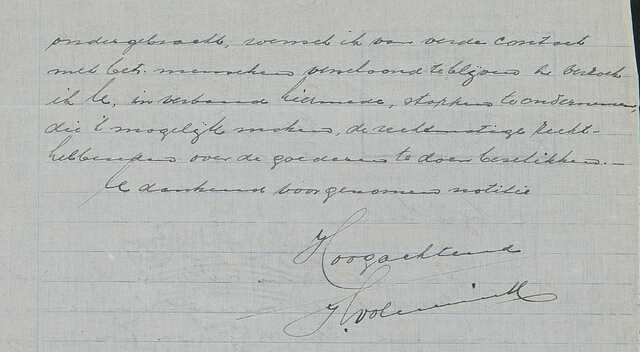 ondergebracht, wensch ik van verder contact
met betr. menschen verschoond te blijven en verzoek
ik U, in verband hiermede, stappen te ondernemen,
die 't mogelijk maken, de rechtmatige Recht-
hebbenden over de goederen te doen beschikken.-
U dankend voor genomen notitie
Hoogachtend